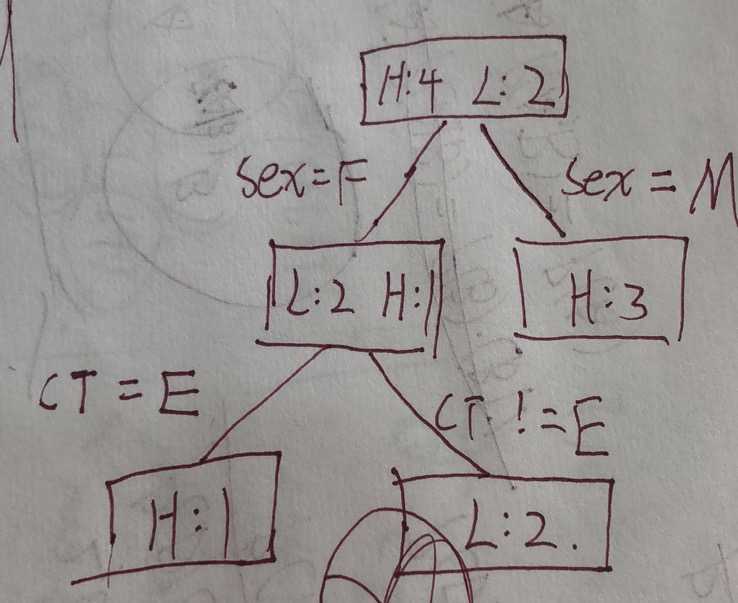 H:4 L:2
Sex=F
Sex = M
L:2 H:1
H:3
CT = E
CT != E
H:1
L:2.